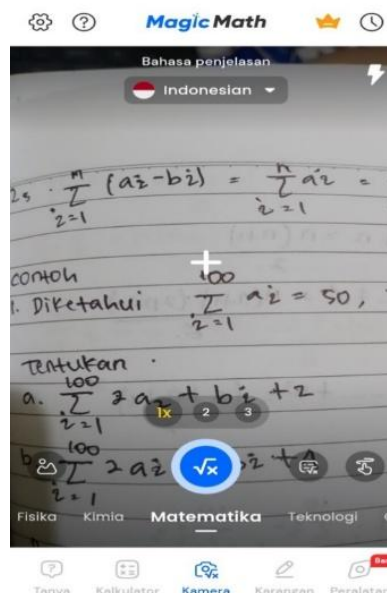 Magic Math
Bahasa penjelasan
Indonesian
2. ∑ i=1 n (ai - bi) = ∑ i=1 n ai =
contoh
1. Diketahui ∑ i=1 100 ai = 50,
Tentukan
a. ∑ i=1 100 2ai + bi + 2
b. ∑ i=1 100 2ai
1x 2 3
Fisika Kimia Matematika Teknologi
Tanya Kalkulator Kamera Karangan Peralatan